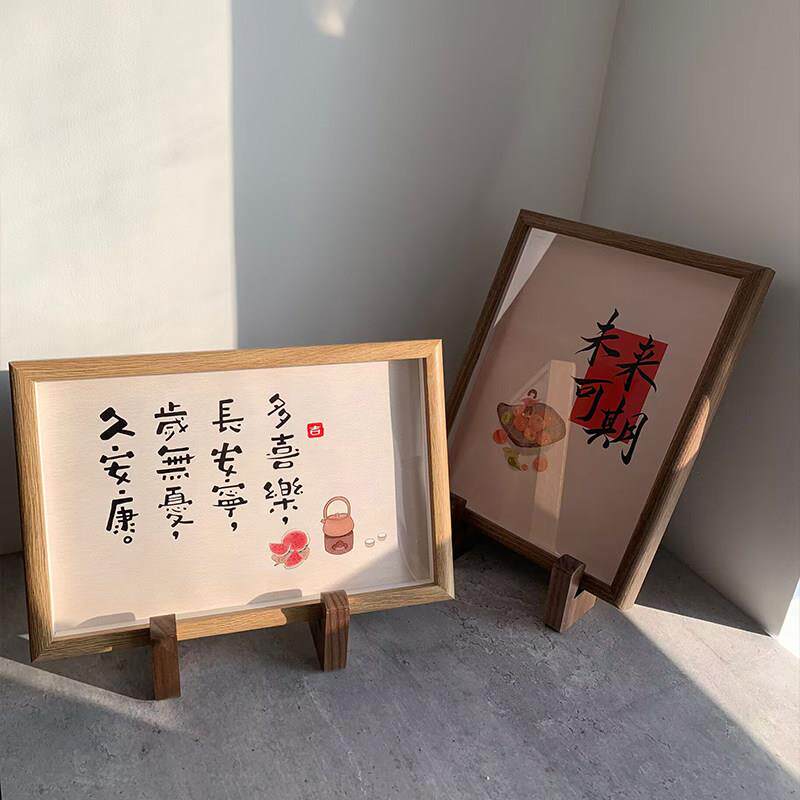 多喜樂，
長安寧，
歲無憂，
久安康。
吉
未来
可期